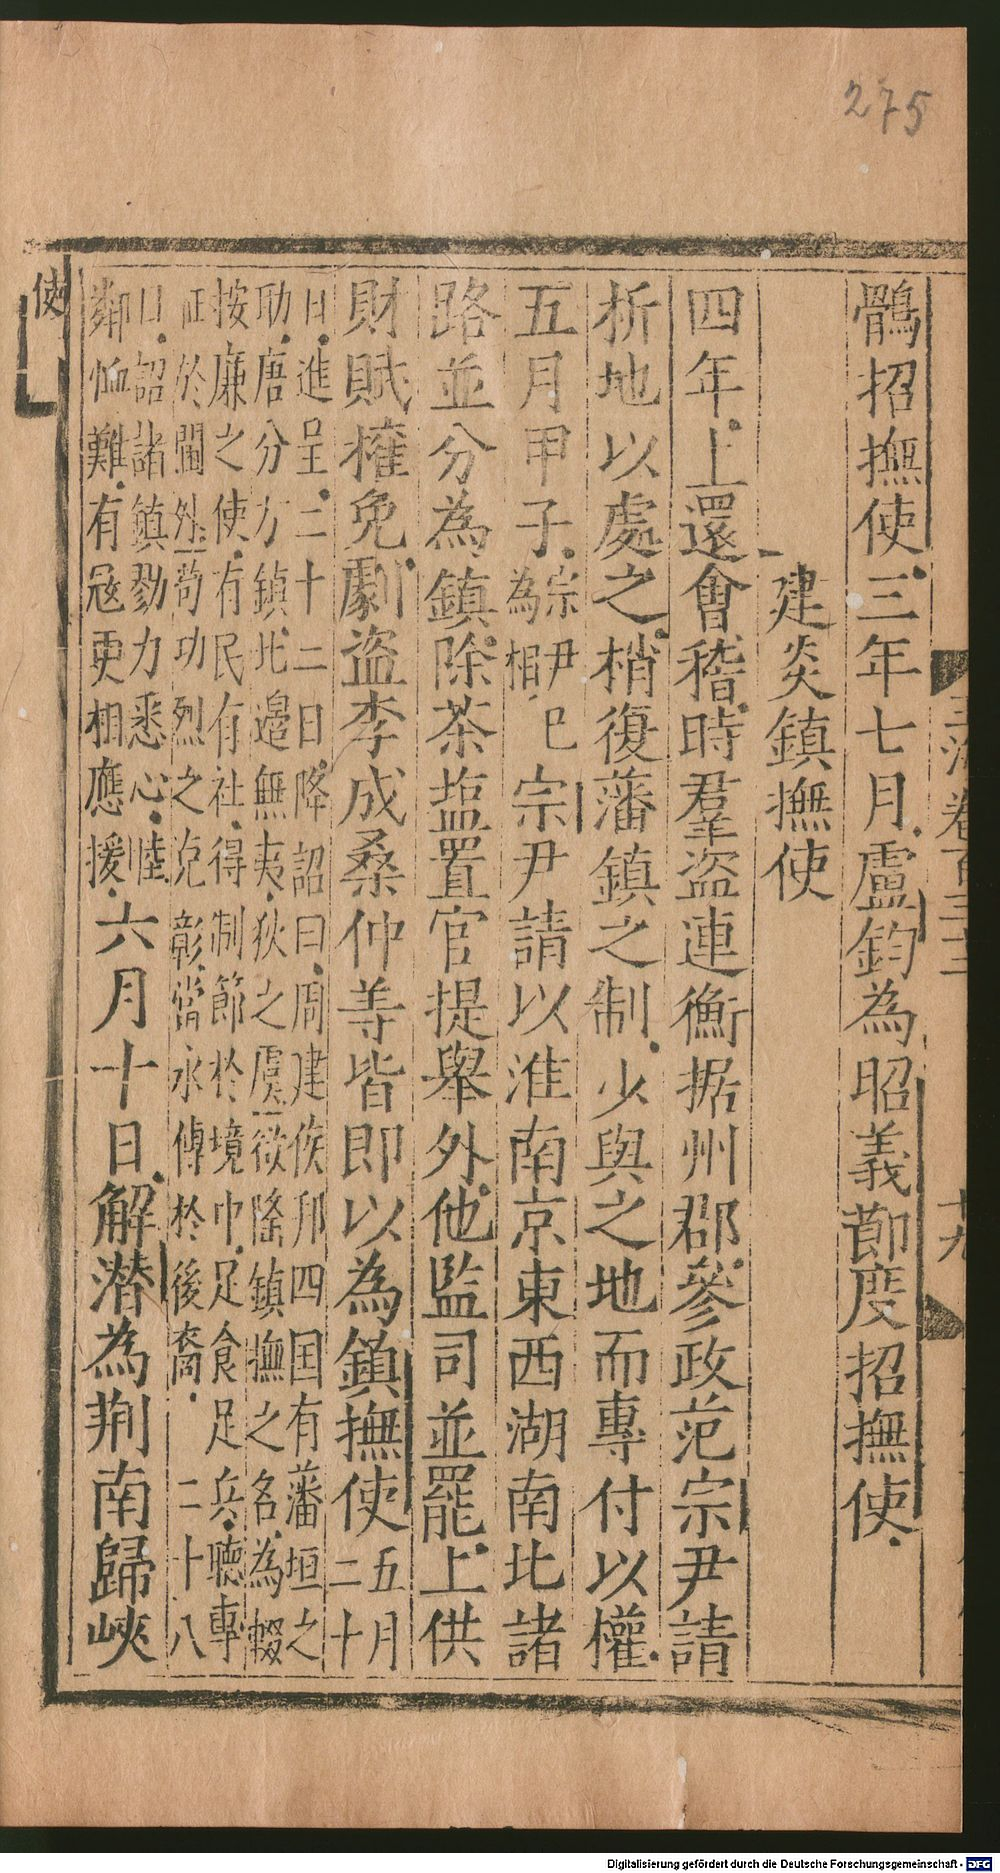 275
玉海卷百三十三
十九
鶻招撫使三年七月盧鈞為昭義節度招撫使
建炎鎮撫使
四年上還會稽時羣盜連衡据州郡叅政范宗尹請
析地以處之稍復藩鎮之制少與之地而專付以權
五月甲子宗尹為相已宗尹請以淮南京東西湖南北諸
路並分為鎮除茶塩置官提舉外他監司並罷上供
財賦権免劇盜李成桑仲等皆即以為鎮撫使五月二十
日進呈二十二日降詔曰周建侯邦四国有藩垣之
助唐分方鎮北邊無夷狄之虞敚隆鎮撫之名為輟
按廉之使有民有社得制節於境中足食足兵聴專
征於閫外苟功烈之克彰當永傳於後裔二十八
日詔諸鎮勠力悉心睦
鄰恤難有冦更相應援六月十日解潛為荆南歸峽
使
Digitalisierung gefördert durch die Deutsche Forschungsgemeinschaft - DFG